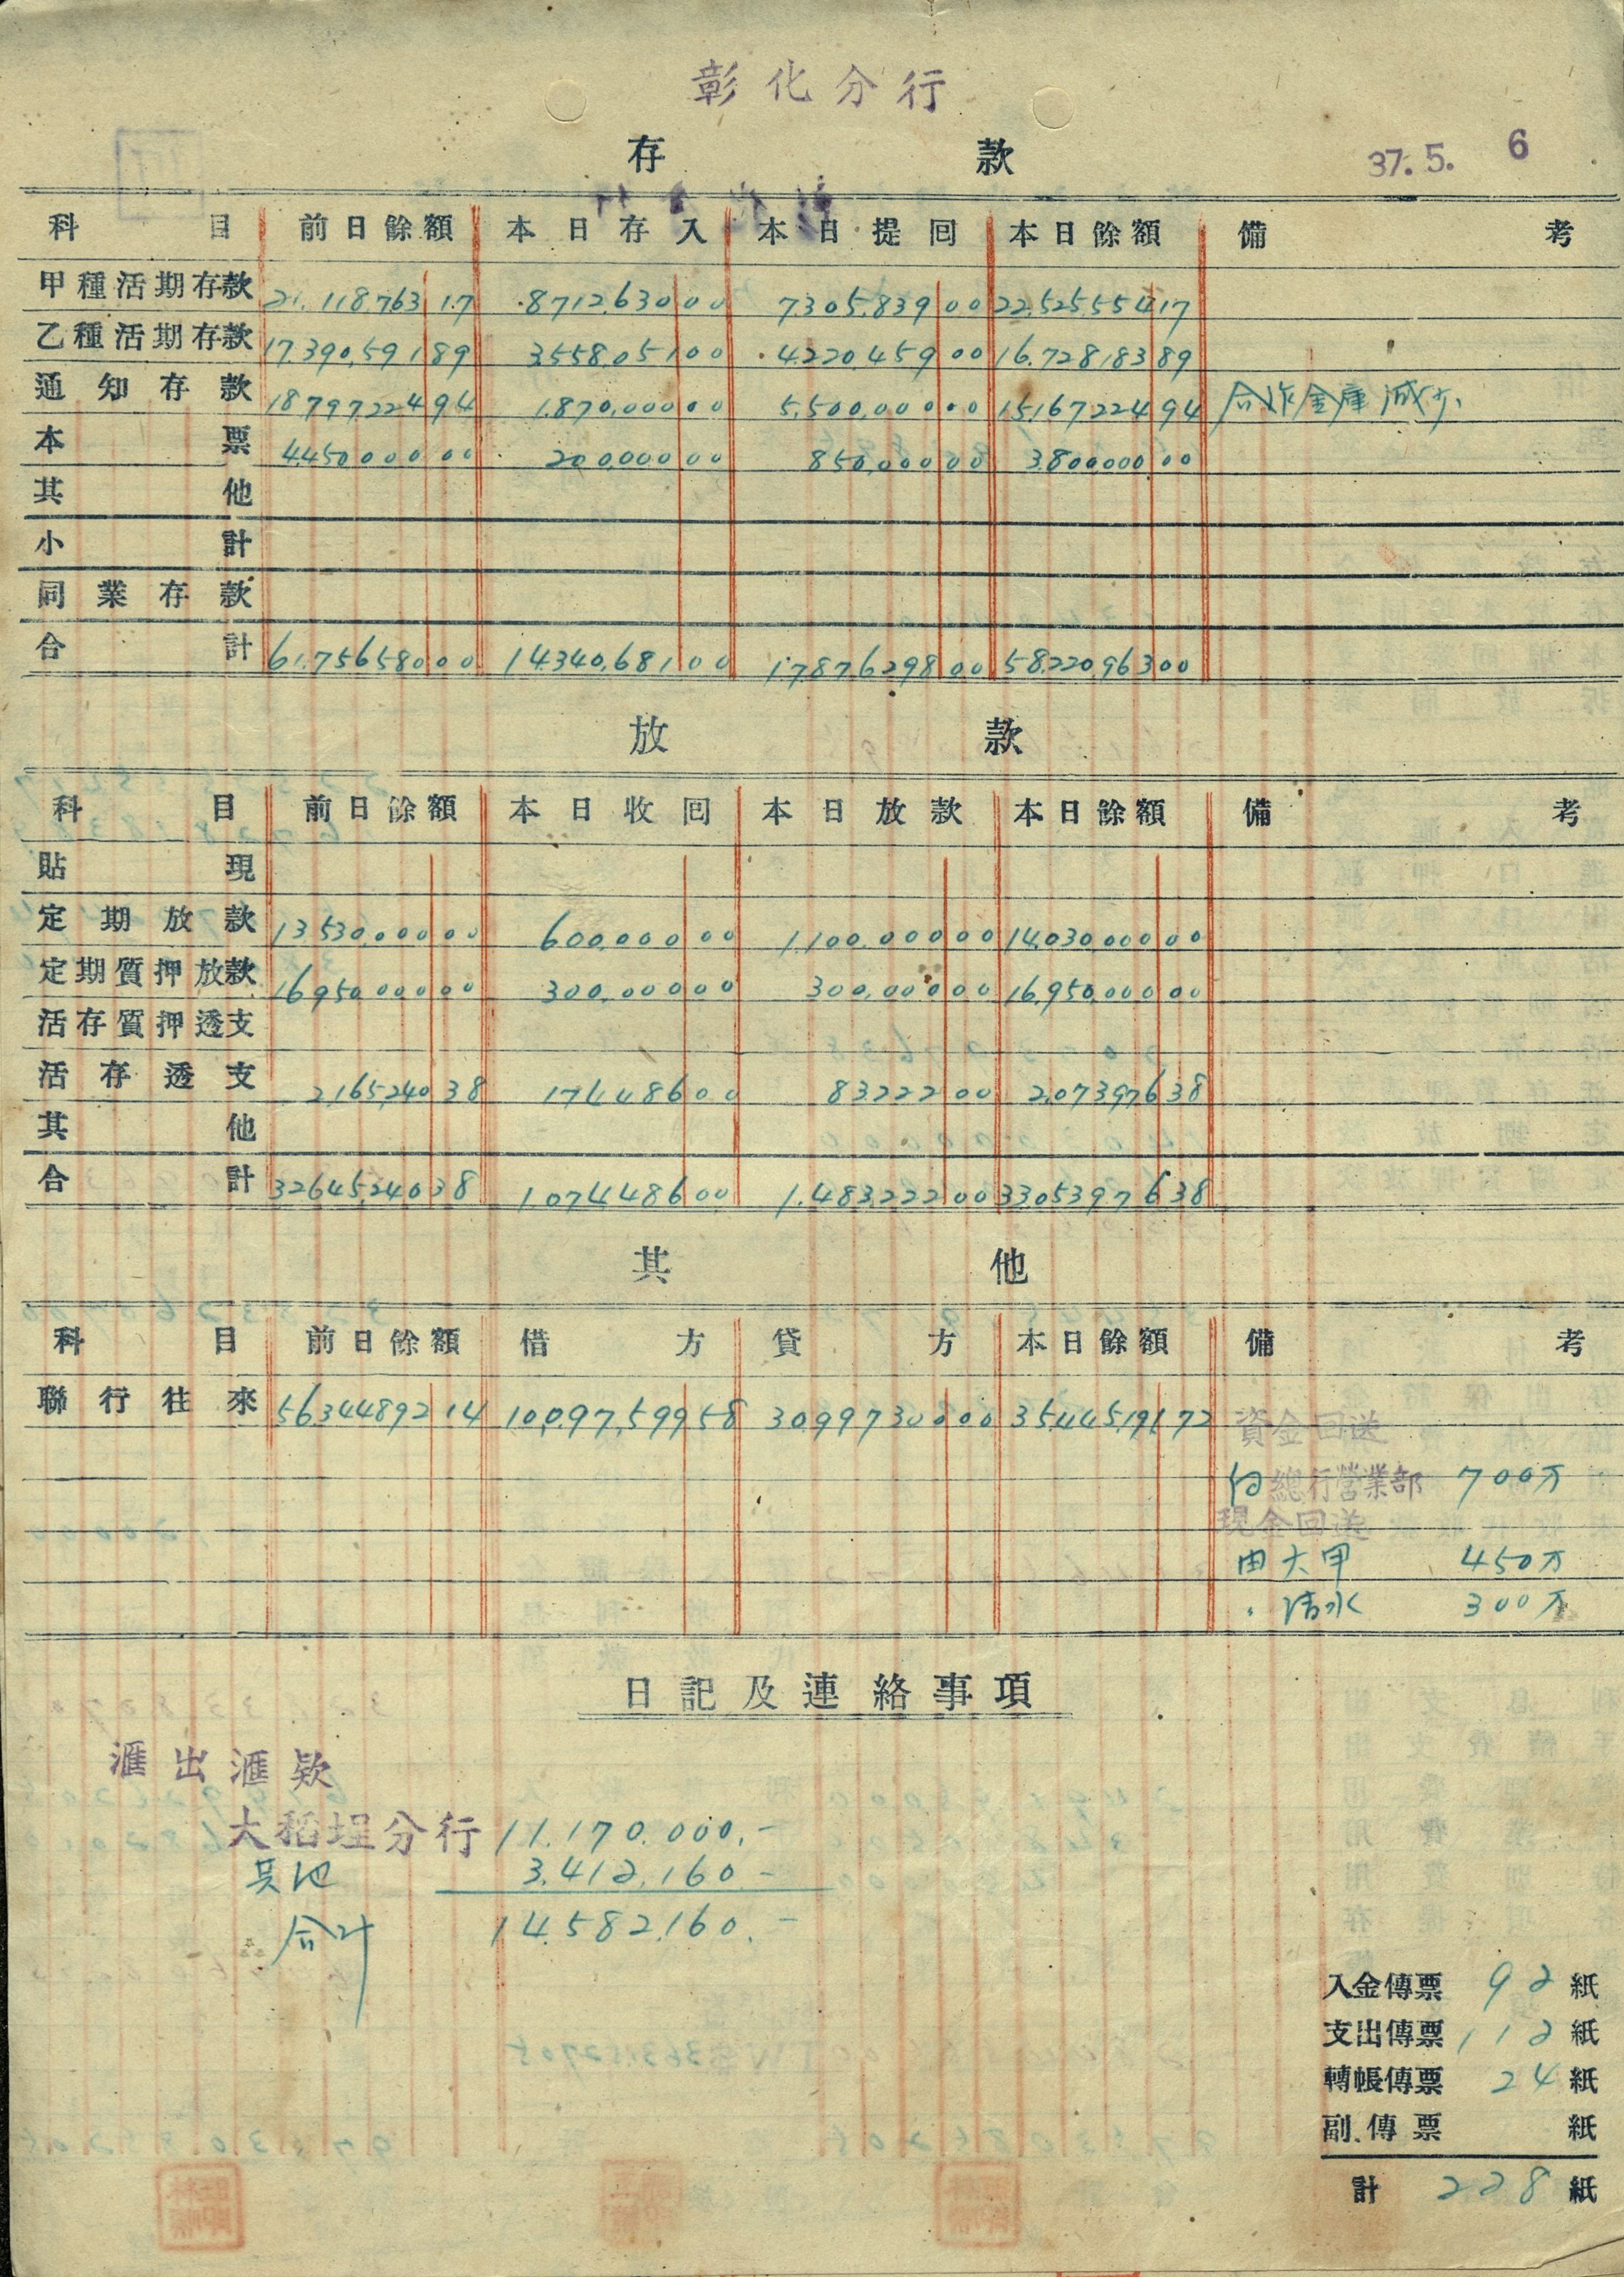 彰化分行
存款
37.5. 6
科目 前日餘額 本日存入 本日提回 本日餘額 備考
甲種活期存款 21,118,763 17 8,712,630 00 7,305,839 00 22,525,554 17
乙種活期存款 17,390,591 89 3,558,051 00 4,220,459 00 16,728,183 89
通知存款 18,797,224 94 1,870,000 00 5,500,000 00 15,167,224 94 合作金庫減少
本票 4,450,000 00 200,000 00 850,000 00 3,800,000 00
其他
小計
同業存款
合計 61,756,580 00 14,340,681 00 17,876,298 00 58,220,963 00
放款
科目 前日餘額 本日收回 本日放款 本日餘額 備考
貼現
定期放款 13,530,000 00 600,000 00 1,100,000 00 14,030,000 00
定期質押放款 16,950,000 00 300,000 00 300,000 00 16,950,000 00
活存質押透支
活存透支 2,165,240 38 174,486 00 83,222 00 2,073,976 38
其他
合計 32,645,240 38 1,074,486 00 1,483,222 00 33,053,976 38
其他
科目 前日餘額 借方 貸方 本日餘額 備考
聯行往來 56,344,892 14 10,097,599 58 30,997,300 00 35,445,191 72 資金回送
向總行營業部 700万
現金回送
由大甲 450万
〃清水 300万
日記及連絡事項
滙出滙欵
大稻埕分行 11,170,000.-
其他 3,412,160.-
合計 14,582,160.-
入金傳票 92 紙
支出傳票 112 紙
轉帳傳票 24 紙
副傳票 紙
計 228 紙